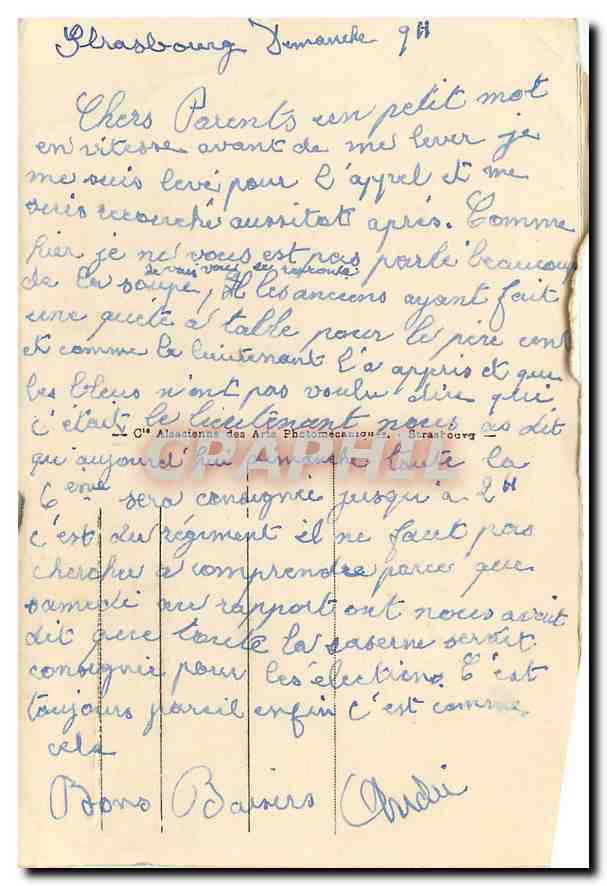 Strasbourg Dimanche 9H
Chers Parents un petit mot
en vitesse avant de me lever je
me suis levé pour l'appel et me
suis recouché aussitot après. Comme
hier je ne vous est pas parlé beaucoup
je vais vous se raconté
de la soupe, les anciens ayant fait
une quète a table pour le père cent
et comme le lieutenant l'a appris et que
les bleus n'ont pas voulu dire qui
c'était le lieutenant nous as dit
— Cie Alsacienne des Arts Photomécaniques, Strasbourg —
GRAPHIL
qu'aujourd'hui dimanche toute la
6eme sera consignée jusqu'à 2H
c'est du régiment il ne faut pas
chercher a comprendre parce que
samedi au rapport ont nous avait
dit que toute la caserne serait
consignie pour les élections. C'est
toujours pareil enfin c'est comme
cela
Bons Baisers André